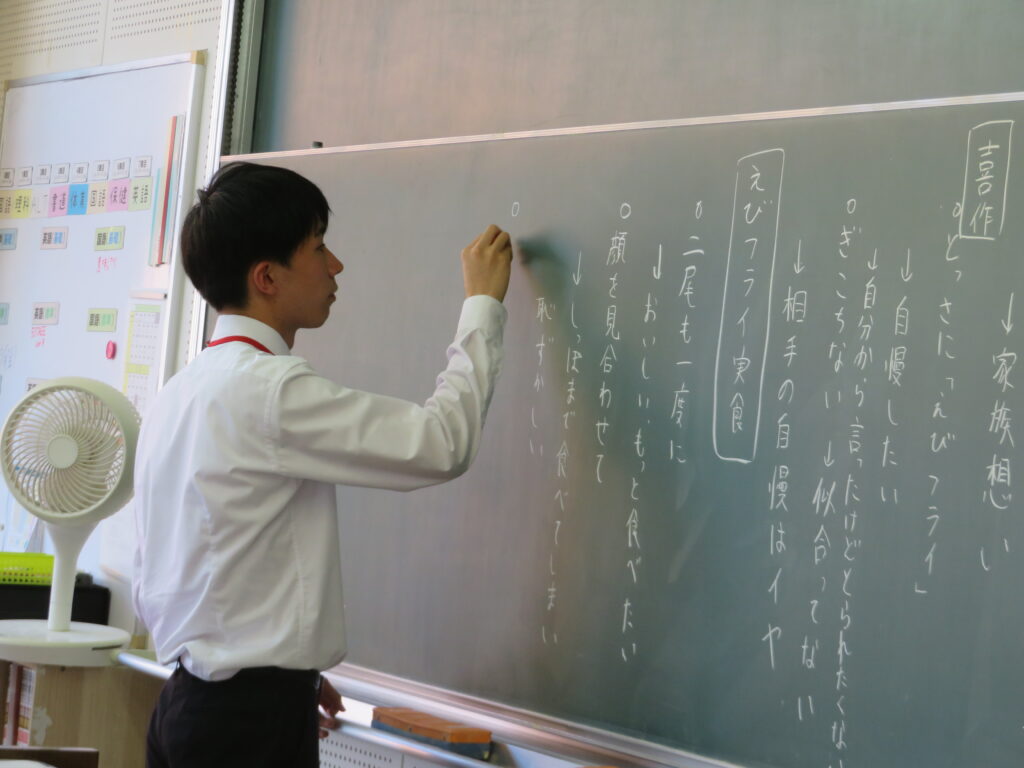 喜作
→家族想い
○とっさに「えびフライ」
→自慢したい
→自分から言ったけどとられたくな
○ぎこちない→似合ってない
→相手の自慢はイヤ
えびフライ実食
○二尾も一度に
→おいしいもっと食べたい
○顔を見合わせて
→しっぽまで食べてしまい
恥ずかしい
○
国語
保健
英語
英語
国語
国語